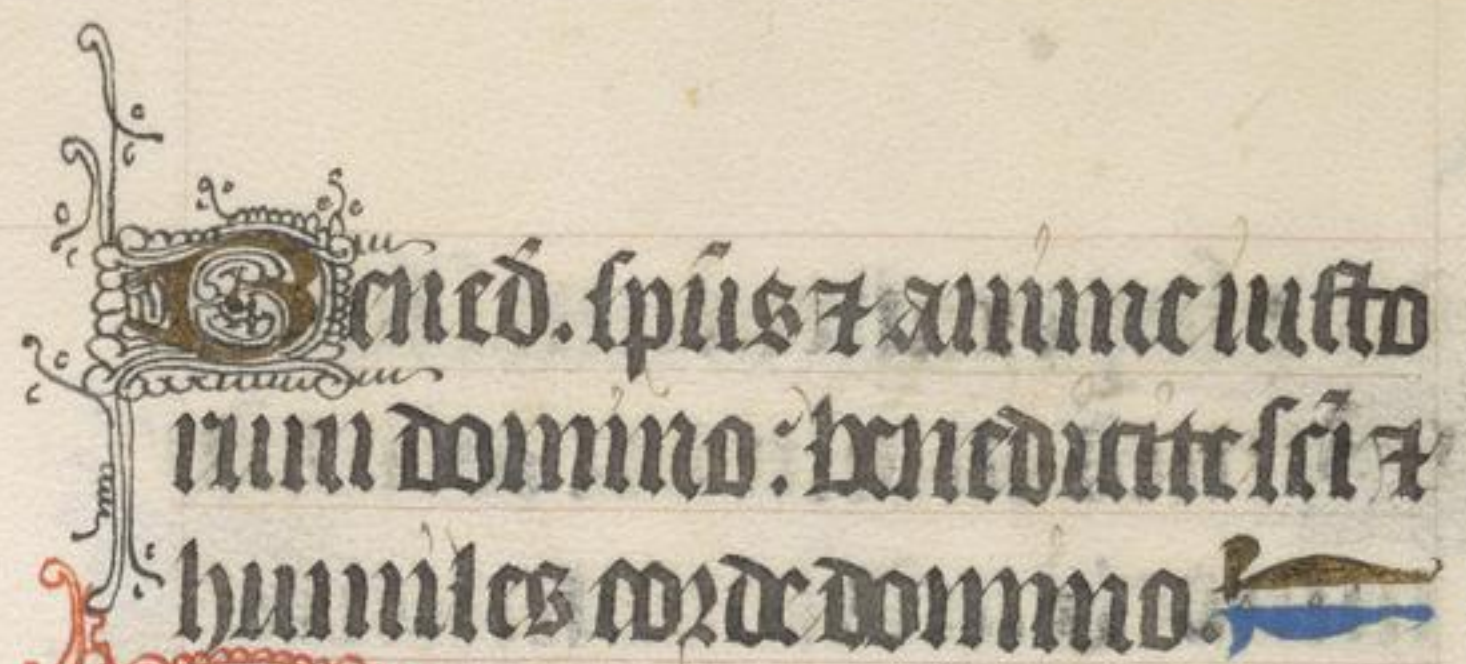 Bened̄. sp̄us ⁊ anime iusto
rum domino: benedicite sc̄i ⁊
humiles corde domino.